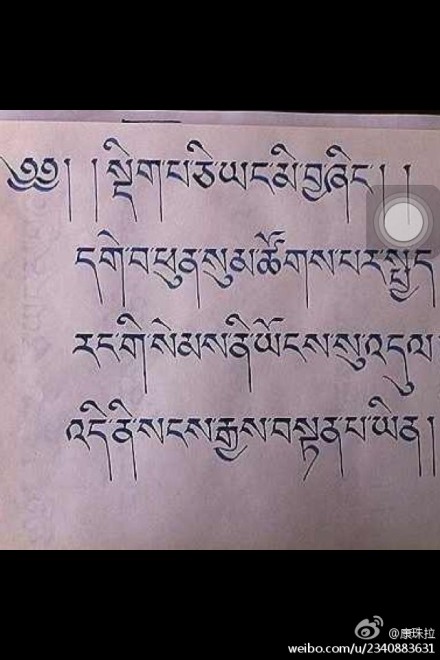 ༄༅། །སྡིག་པ་ཅི་ཡང་མི་བྱ་ཞིང་། །
དགེ་བ་ཕུན་སུམ་ཚོགས་པར་སྤྱད
རང་གི་སེམས་ནི་ཡོངས་སུ་འདུལ
འདི་ནི་སངས་རྒྱས་བསྟན་པ་ཡིན།
@康珠拉
weibo.com/u/2340883631